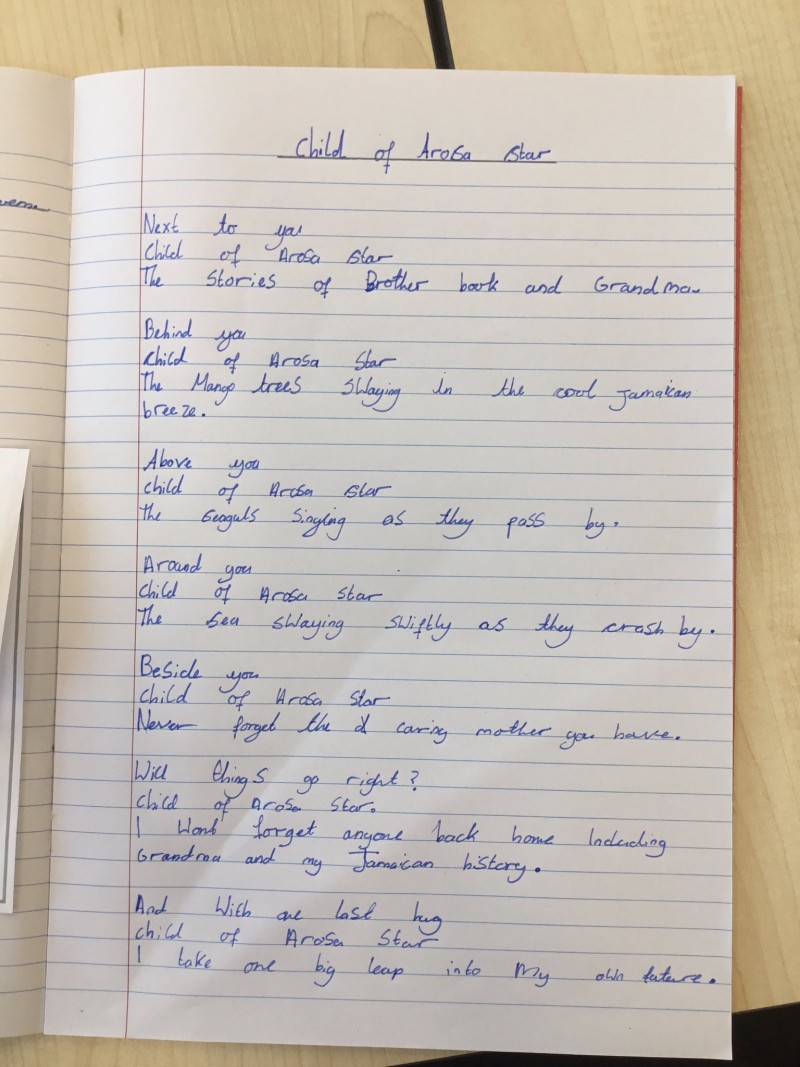 Child of Arosa Star
Next to you
Child of Arosa Star
The Stories of Brother book and Grandma.
Behind you
Child of Arosa Star
The Mango trees swaying in the cool Jamaican
breeze.
Above you
Child of Arosa Star
The Seaguls Singing as they pass by.
Around you
Child of Arosa Star
The Sea swaying swiftly as they crash by.
Beside you
Child of Arosa Star
Never forget the caring mother you have.
Will things go right?
Child of Arosa Star.
I Wont forget anyone back home Including
Grandma and my Jamaican history.
And With one last hug
Child of Arosa Star
I take one big leap into My own future.